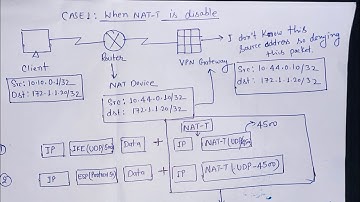 CASE1: When NAT-T is disable
I don't know this
source address so denying
this packet.
Router
VPN Gateway
Client
NAT Device
Src: 10.10.0.1/32
Dst: 172.1.1.20/32
Src: 10.44.0.10/32
dst: 172.1.1.20/32
Src: 10.44.0.10/32
dst: 172.1.1.20/32
NAT-T
4500
IP
Data
+
IP
IP
Data
+
IP
NAT-T (UDP-4500)